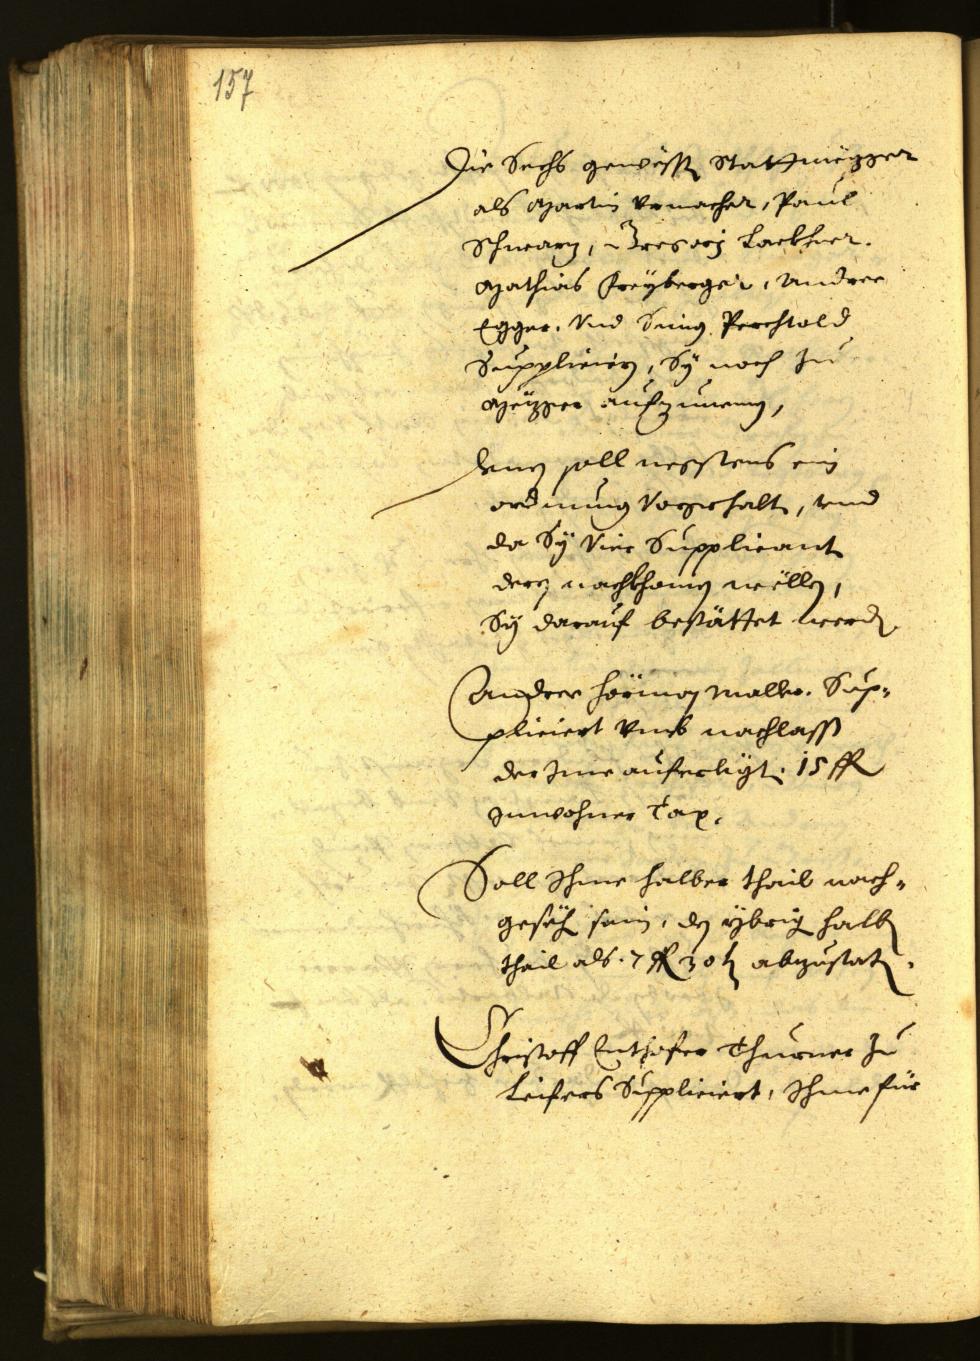 157
Die Sechs gewesste Stattmezger
als Martin Urmacher, Paul
Schwarz, Gregori Lackhner.
Mathias Freyberger, Andree
Egger. Und Perchtold
Supplicieren, Sÿ noch zu
Mezger aufzunemen,
Inen soll negstens ein
ordnung vorgehalten, und
da Sÿ vier Supplicanten
deren nachkhomen wöllen,
Sÿ darauf bestättet werden.
Andree maller. Sup-
pliciert umb nachlass
der Ime auferlegten. 15 fl
Inwohner Tax.
Soll Ihme halber thail nach-
gesehen sein, den ybrigen halben
thail als. 7 fl 30 kr abzustaten.
Christoff Thurner zu
Leifers Suppliciert, Ihme für